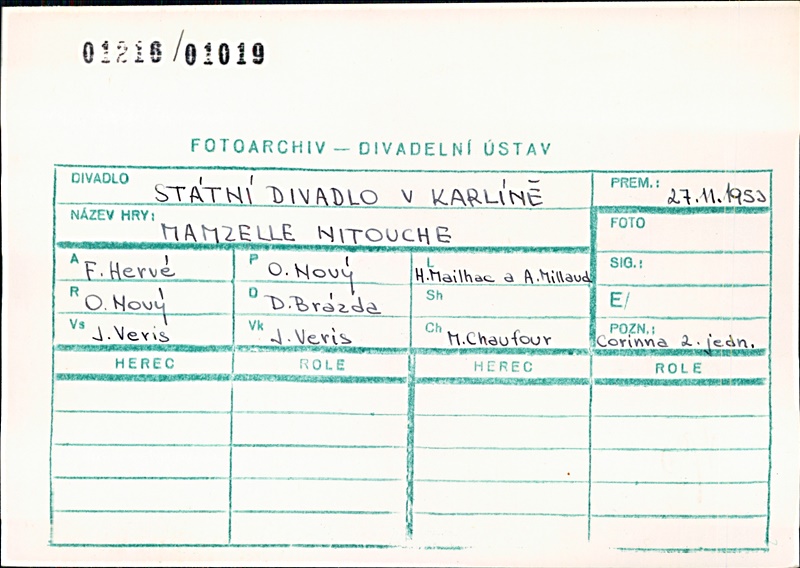 01216/01019
FOTOARCHIV — DIVADELNÍ ÚSTAV
DIVADLO STÁTNÍ DIVADLO V KARLÍNĚ PREM.: 27.11.1953
NÁZEV HRY: MAMZELLE NITOUCHE FOTO
A F. Hervé P O. Nový L H. Mailhac a A. Millaud SIG.:
R O. Nový D D. Brázda Sh E/
Vs J. Veris Vk J. Veris Ch M. Chaufour POZN.: Corinna 2. jedn.
HEREC ROLE HEREC ROLE